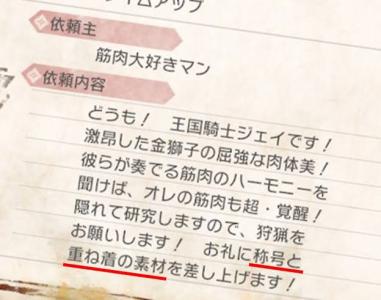 イムアップ
依頼主
筋肉大好きマン
依頼内容
どうも! 王国騎士ジェイです!
激昂した金獅子の屈強な肉体美!
彼らが奏でる筋肉のハーモニーを
聞けば、オレの筋肉も超・覚醒!
隠れて研究しますので、狩猟を
お願いします! お礼に称号と
重ね着の素材を差し上げます!